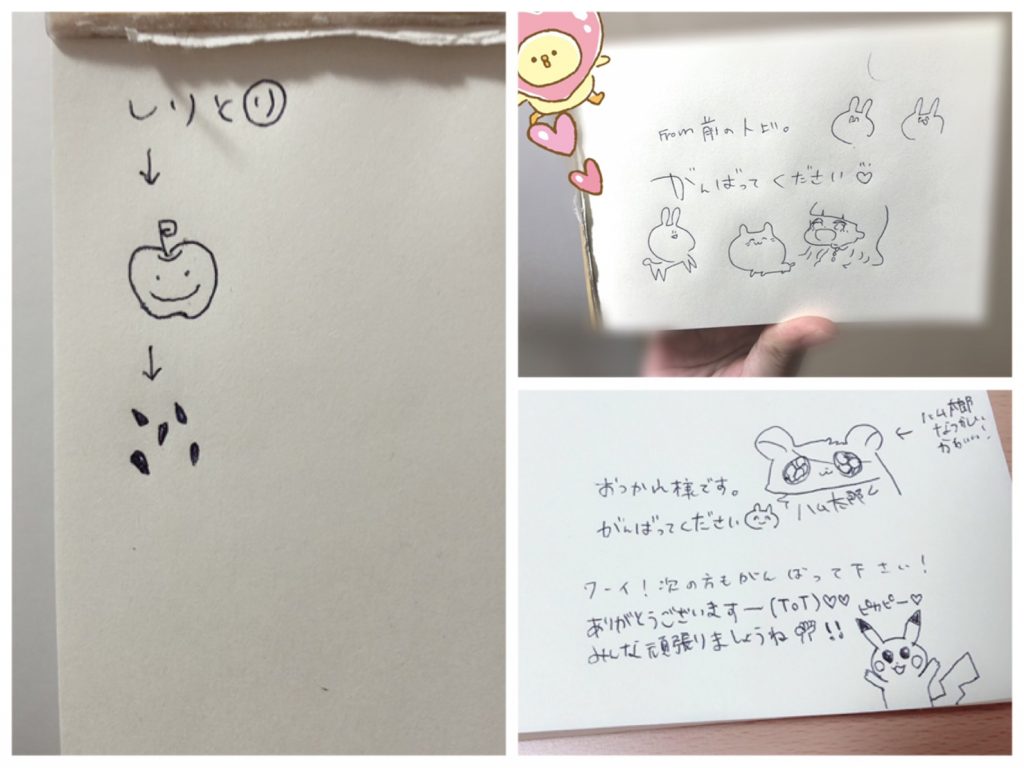 しりとり
From 前の人ビ。
がんばってください♡
ハム太郎
なつかしい
かわいい!
おつかれ様です。
がんばってください
ハム太郎
ワーイ!次の方もがんばって下さい!
ありがとうございますー(ToT)♡♡
みんな頑張りましょうね!!
ピカピー♡